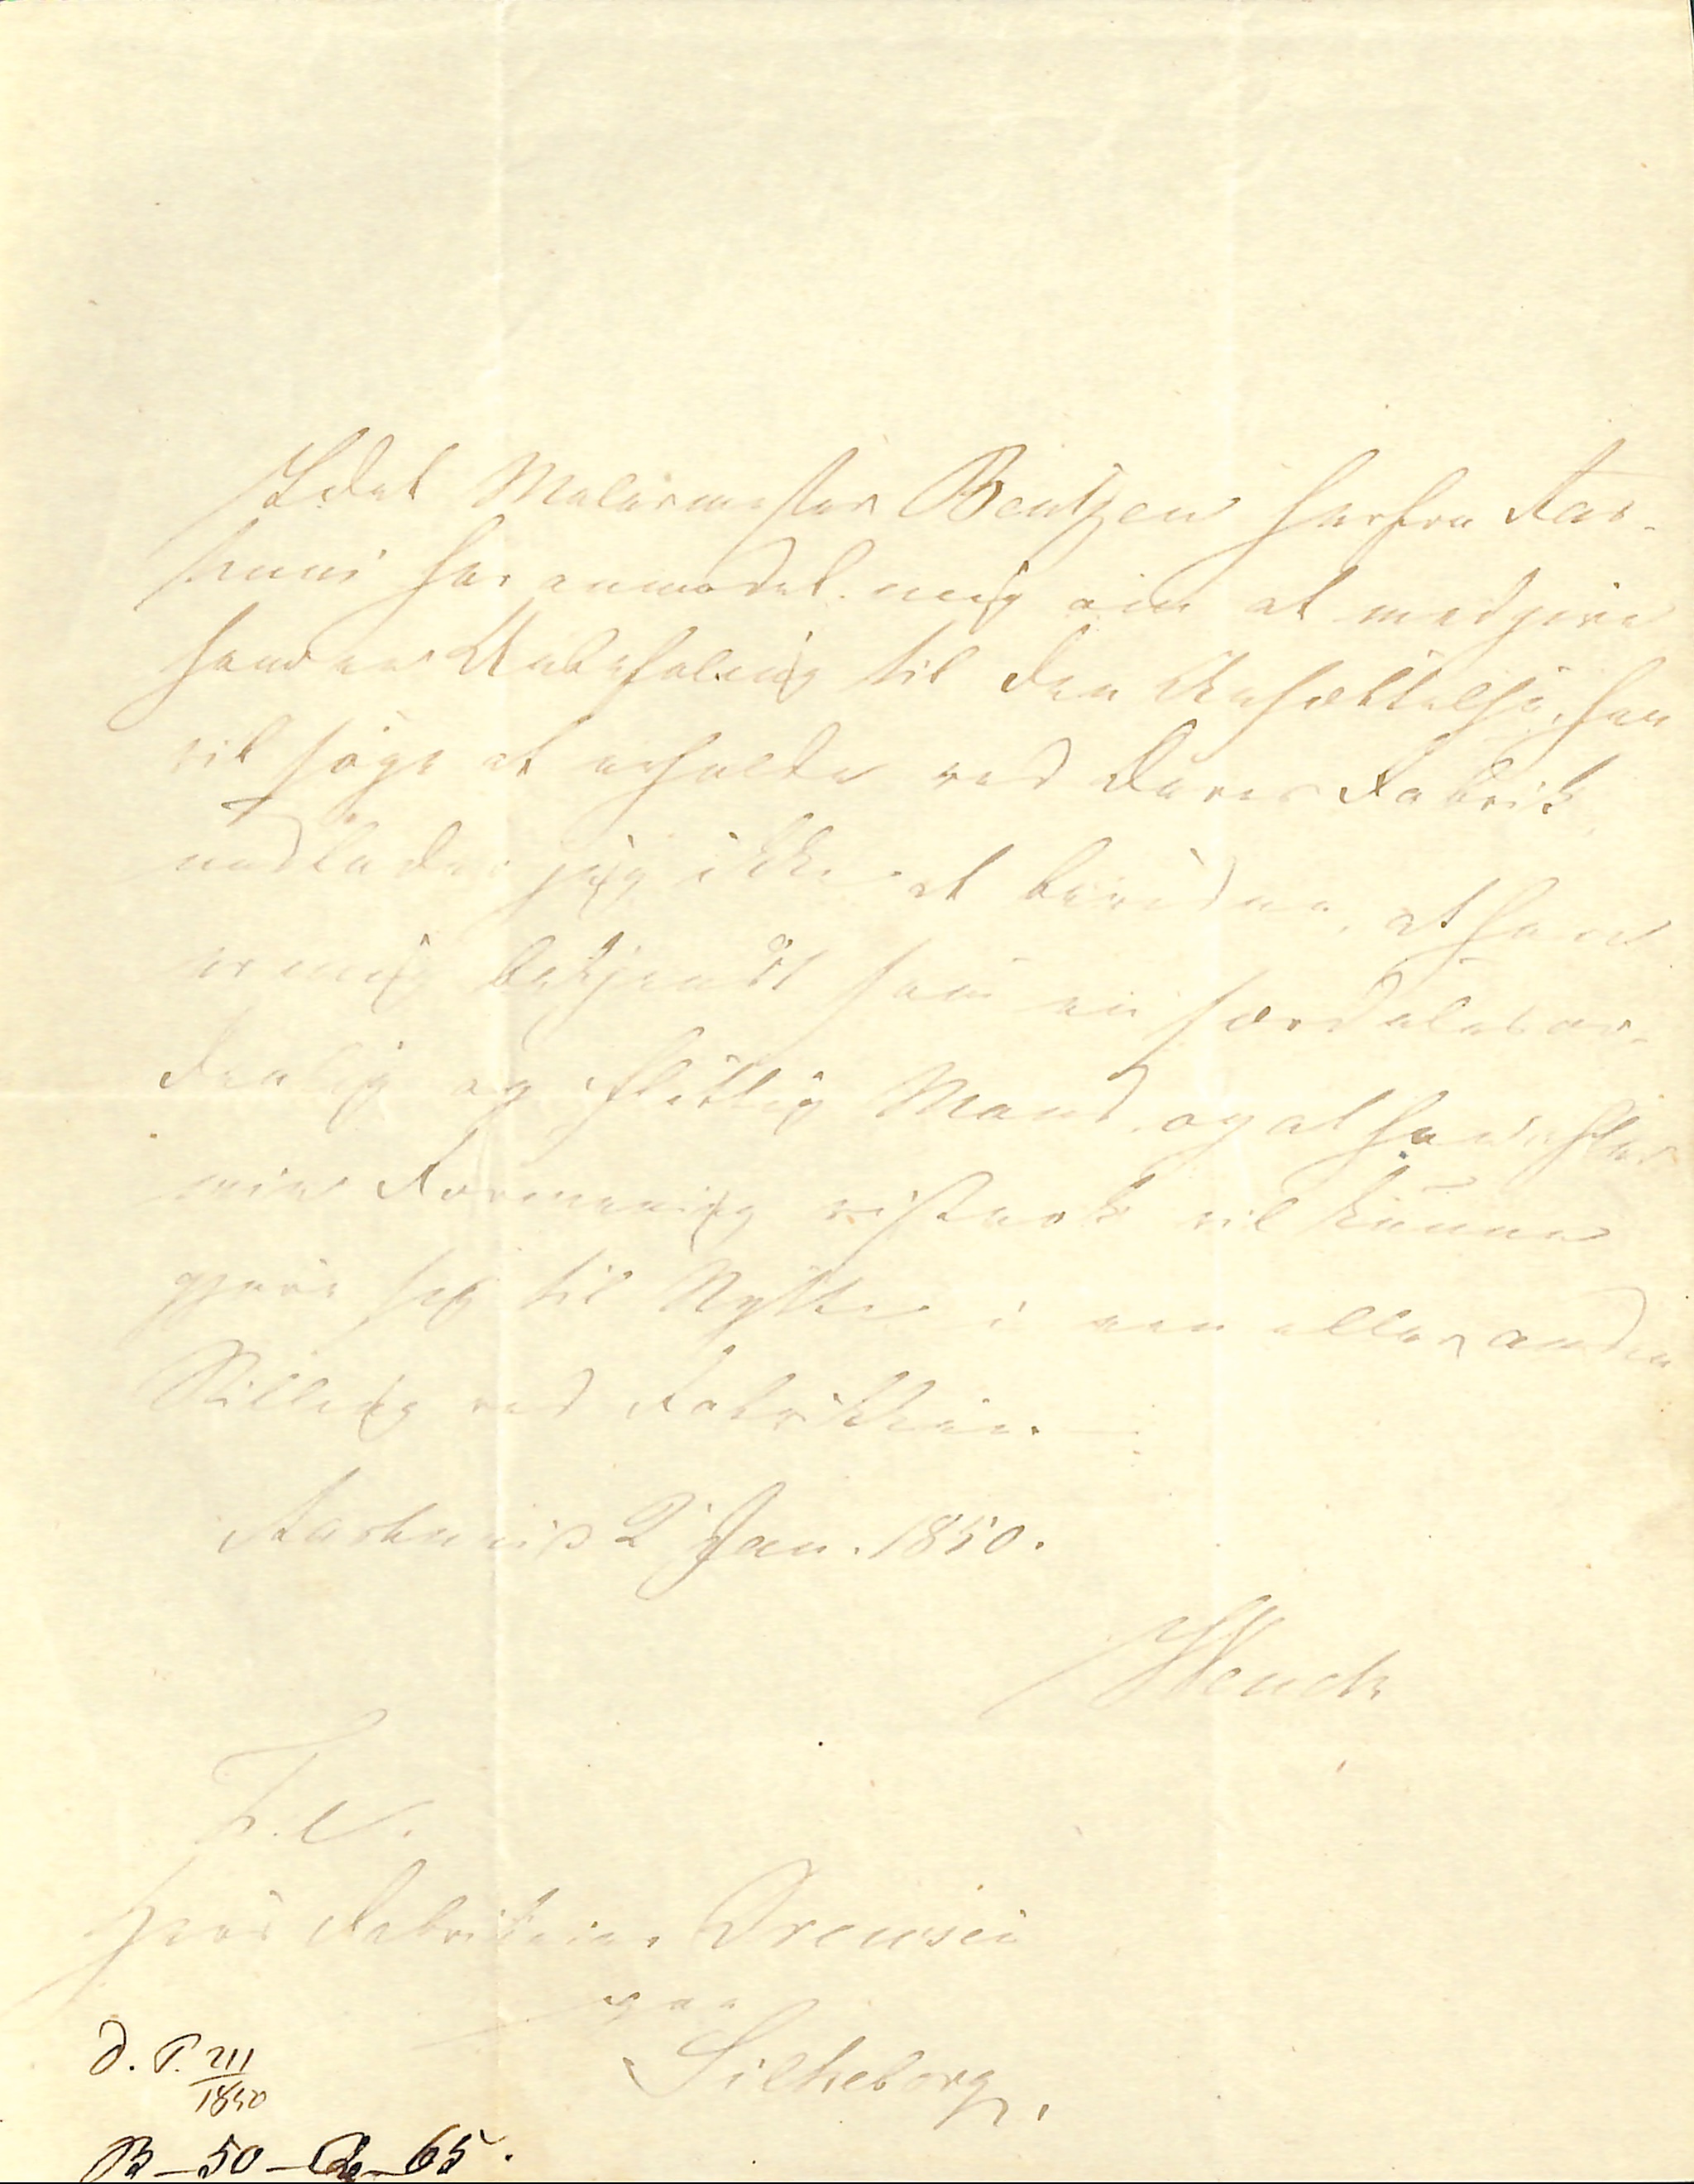 Idet Malermester Bentzen herfra Aar-
huus har anmodet mig om at medgive
ham en Anbefaling til den Ansættelse, han
vil søge at erholde ved Deres Fabrik,
undlader jeg ikke at bevidne, at han
er mig bekjendt som en særdeles or-
dentlig og flittig Mand, og at han efter
min Formening vistnok vil kunne
gjøre sig til Nytte i een eller anden
Stilling ved Fabrikken.
Aarhuus 2 Jan. 1850.
T. V.
Herr Fabrikeier Drewsen
paa
Silkeborg.
D. P. 211
1850
B-50-65.